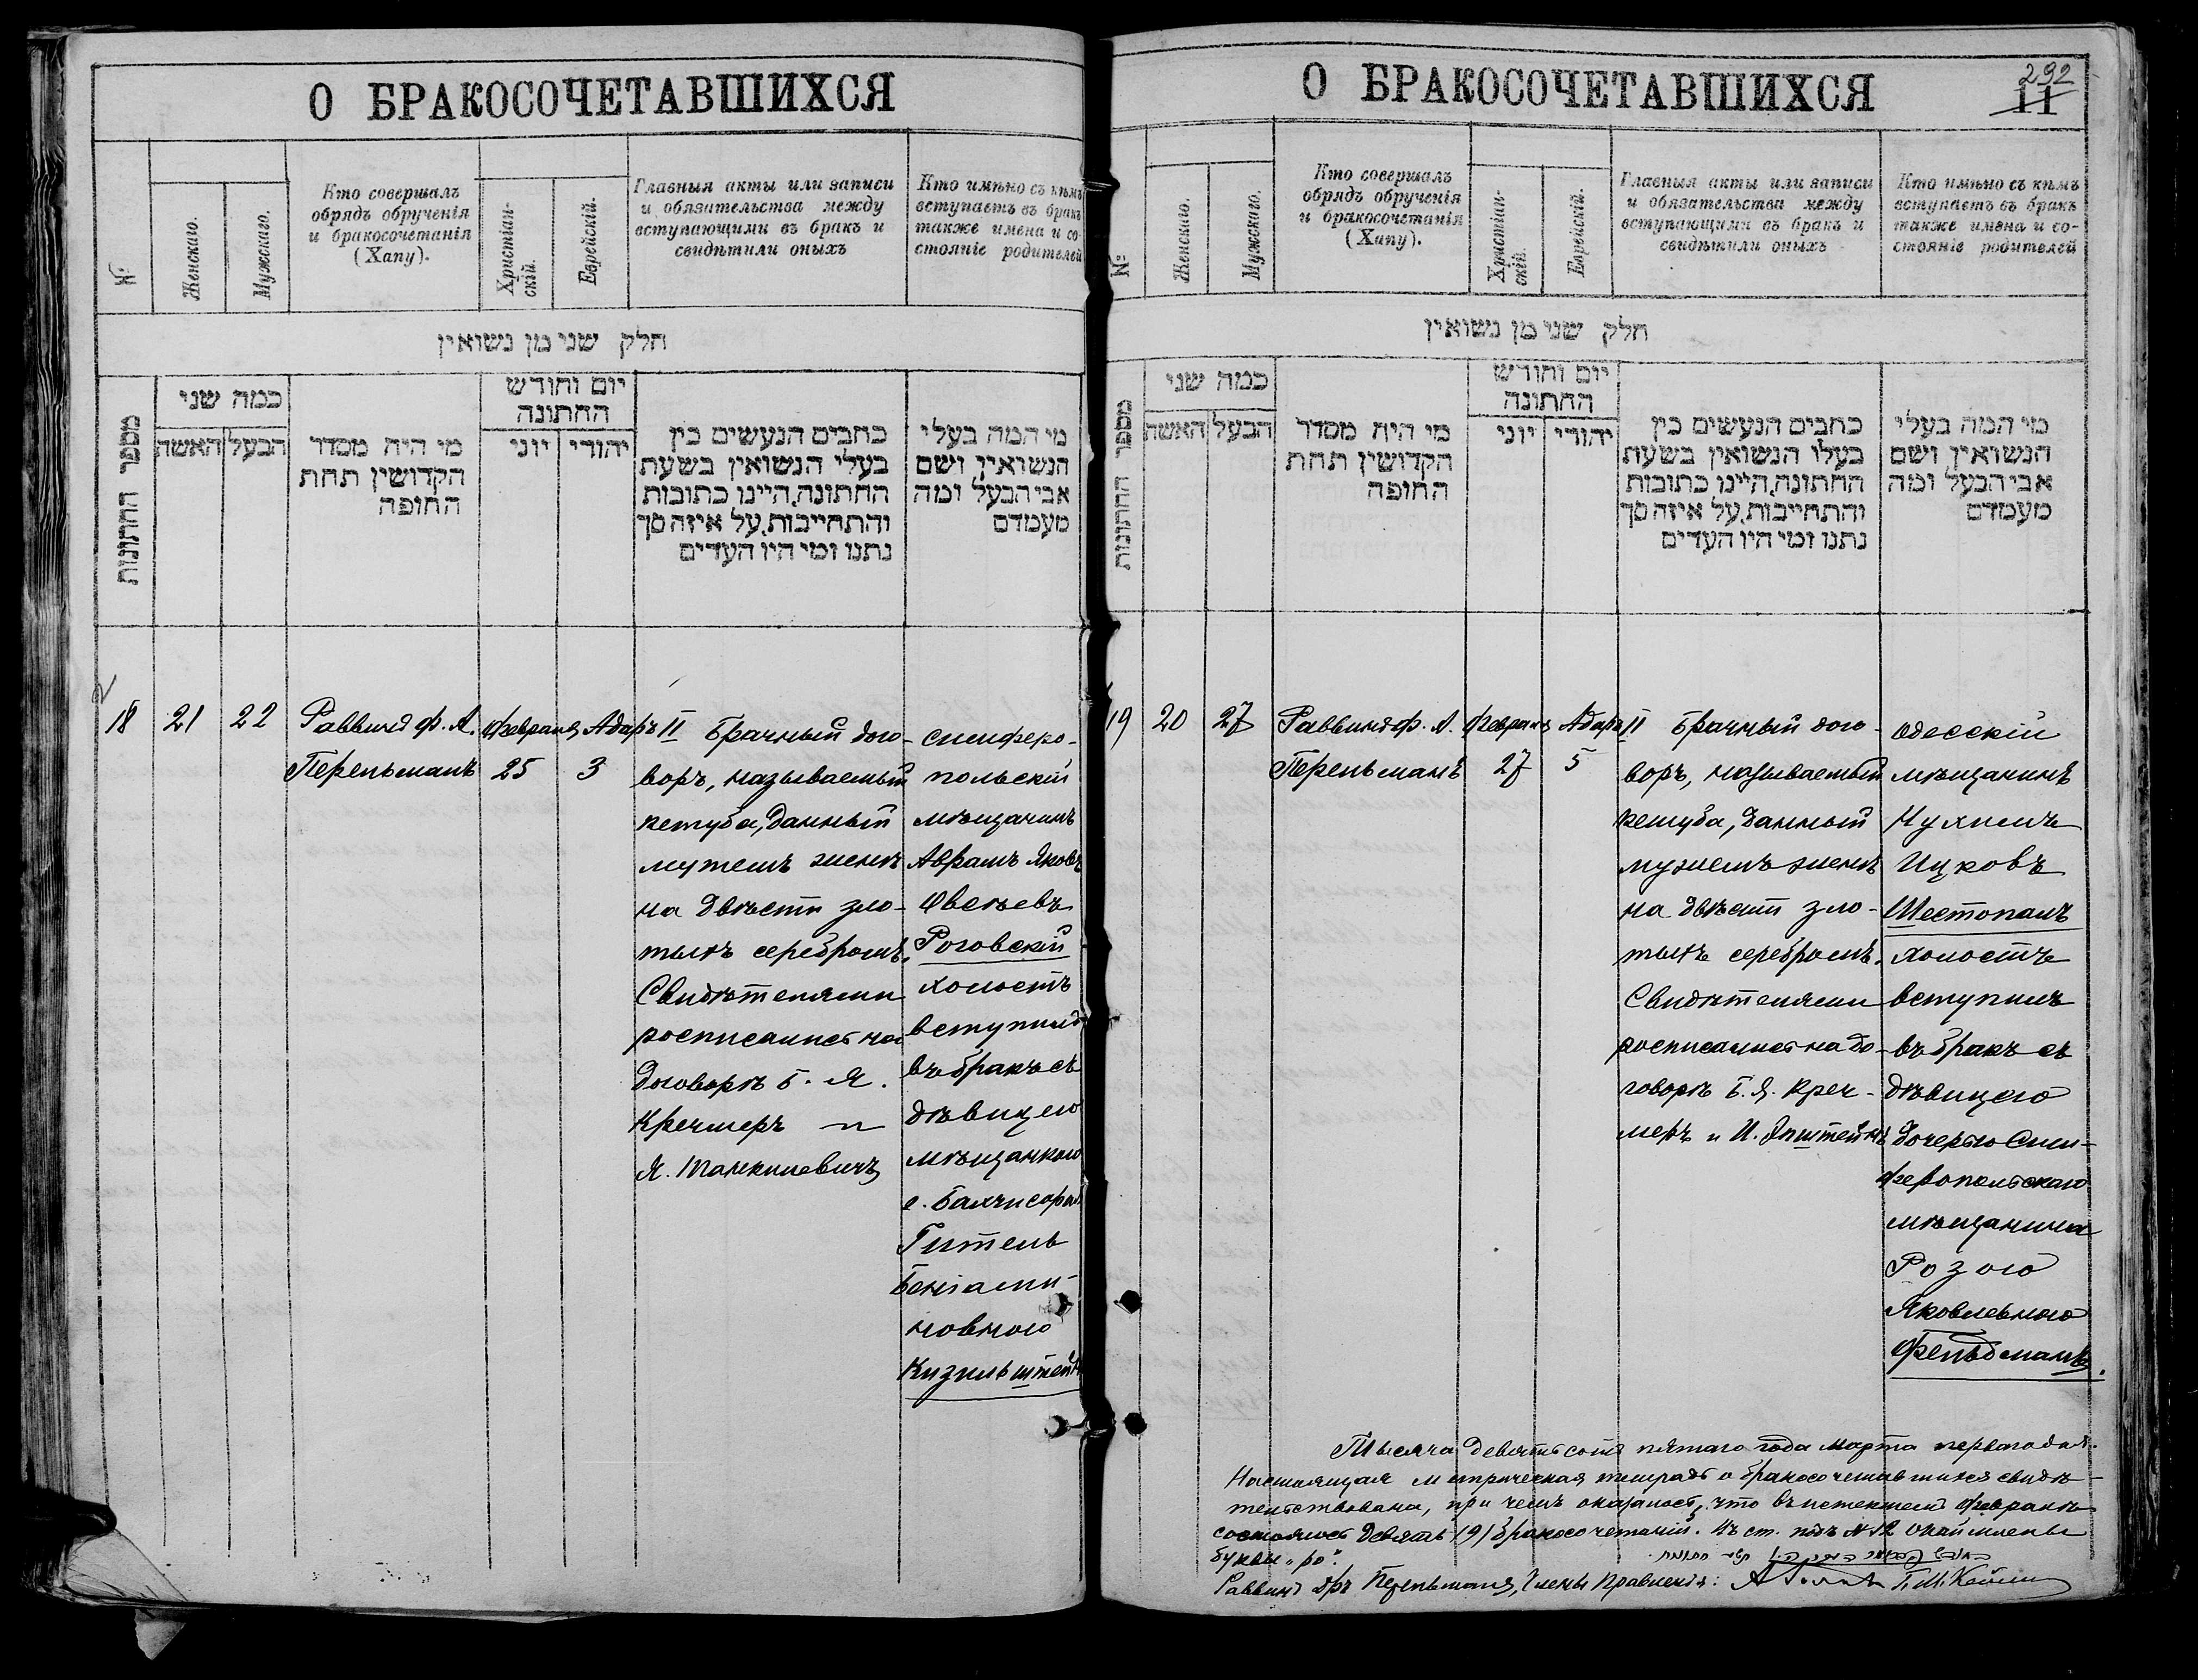 О БРАКОСОЧЕТАВШИХСЯ
№
Женскаго.
Мужскаго.
Кто совершалъ
обрядъ обрученія
и бракосочетанія
(Хапу).
Христіан-
скій.
Еврейскій.
Главныя акты или записи
и обязательства между
вступающими въ бракъ и
свидѣтили оныхъ
Кто имѣно съ кѣмъ
вступаетъ въ бракъ
также имена и со-
стояніе родителей
חלק שני מן נשואין
מספר החתונות
כמה שני
האשה
הבעל
מי היה מסדר
הקדושין תחת
החופה
יום וחודש
החתונה
יוני
יהודי
כתבים הנעשים בין
בעלי הנשואין בשעת
החתונה, היינו כתובות
והתחייבות, על איזה סך
נתנו ומי היו העדים
מי המה בעלי
הנשואין ושם
אבי הבעל ומה
מעמדם
18
21
22
Раввинъ Ф. А.
Перельманъ
Февраля
25
Адаръ II
3
Брачный дого-
воръ, называемый
кетуба, данный
мужемъ женѣ
на двѣсти зло-
тыхъ серебромъ.
Свидѣтелями
росписались на
договорѣ Б. Я.
Кречмеръ и
Я. Танкилевичъ
Симферо-
польскій
мѣщанинъ
Аврамъ Яковъ
Овсѣевъ
Роговскій
холостъ
вступилъ
въ бракъ съ
дѣвицею
мѣщанкою
г. Бахчисарая
Гитель
Беніами-
новною
Кизильштейнъ
О БРАКОСОЧЕТАВШИХСЯ
292
11
№
Женскаго.
Мужскаго.
Кто совершалъ
обрядъ обрученія
и бракосочетанія
(Хапу).
Христіан-
скій.
Еврейскій.
Главныя акты или записи
и обязательства между
вступающими въ бракъ и
свидѣтили оныхъ
Кто имѣно съ кѣмъ
вступаетъ въ бракъ
также имена и со-
стояніе родителей
חלק שני מן נשואין
מספר החתונות
כמה שני
האשה
הבעל
מי היה מסדר
הקדושין תחת
החופה
יום וחודש
החתונה
יוני
יהודי
כתבים הנעשים בין
בעלו הנשואין בשעת
החתונה, היינו כתובות
והתחייבות, על איזה סך
נתנו ומי היו העדים
מי המה בעלי
הנשואין ושם
אבי הבעל ומה
מעמדם
19
20
27
Раввинъ Ф. А.
Перельманъ
Февраля
27
Адаръ II
5
Брачный дого-
воръ, называемый
кетуба, данный
мужемъ женѣ
на двѣсти зло-
тыхъ серебромъ.
Свидѣтелями
росписались на до-
говорѣ Б. Я. Креч-
меръ и И. Эпштейнъ
Одесскій
мѣщанинъ
Нухимъ
Ицковъ
Шестопалъ
холостъ
вступилъ
въ бракъ съ
дѣвицею
дочерью Сим-
феропольскаго
мѣщанина
Розою
Яковлевною
Фельдманъ.
Тысяча девятьсотъ пятаго года марта перваго дня.
Настоящая метрическая тетрадь о бракосочетавшихся свидѣ-
тельствована, при чемъ оказалось, что въ истекшемъ Февралѣ
состоялось девять (9) бракосочетаній. Въ ст. подъ № 12 окаймлены
буквы „ро".
Раввинъ Д-ръ Перельманъ, Члены Правленія: